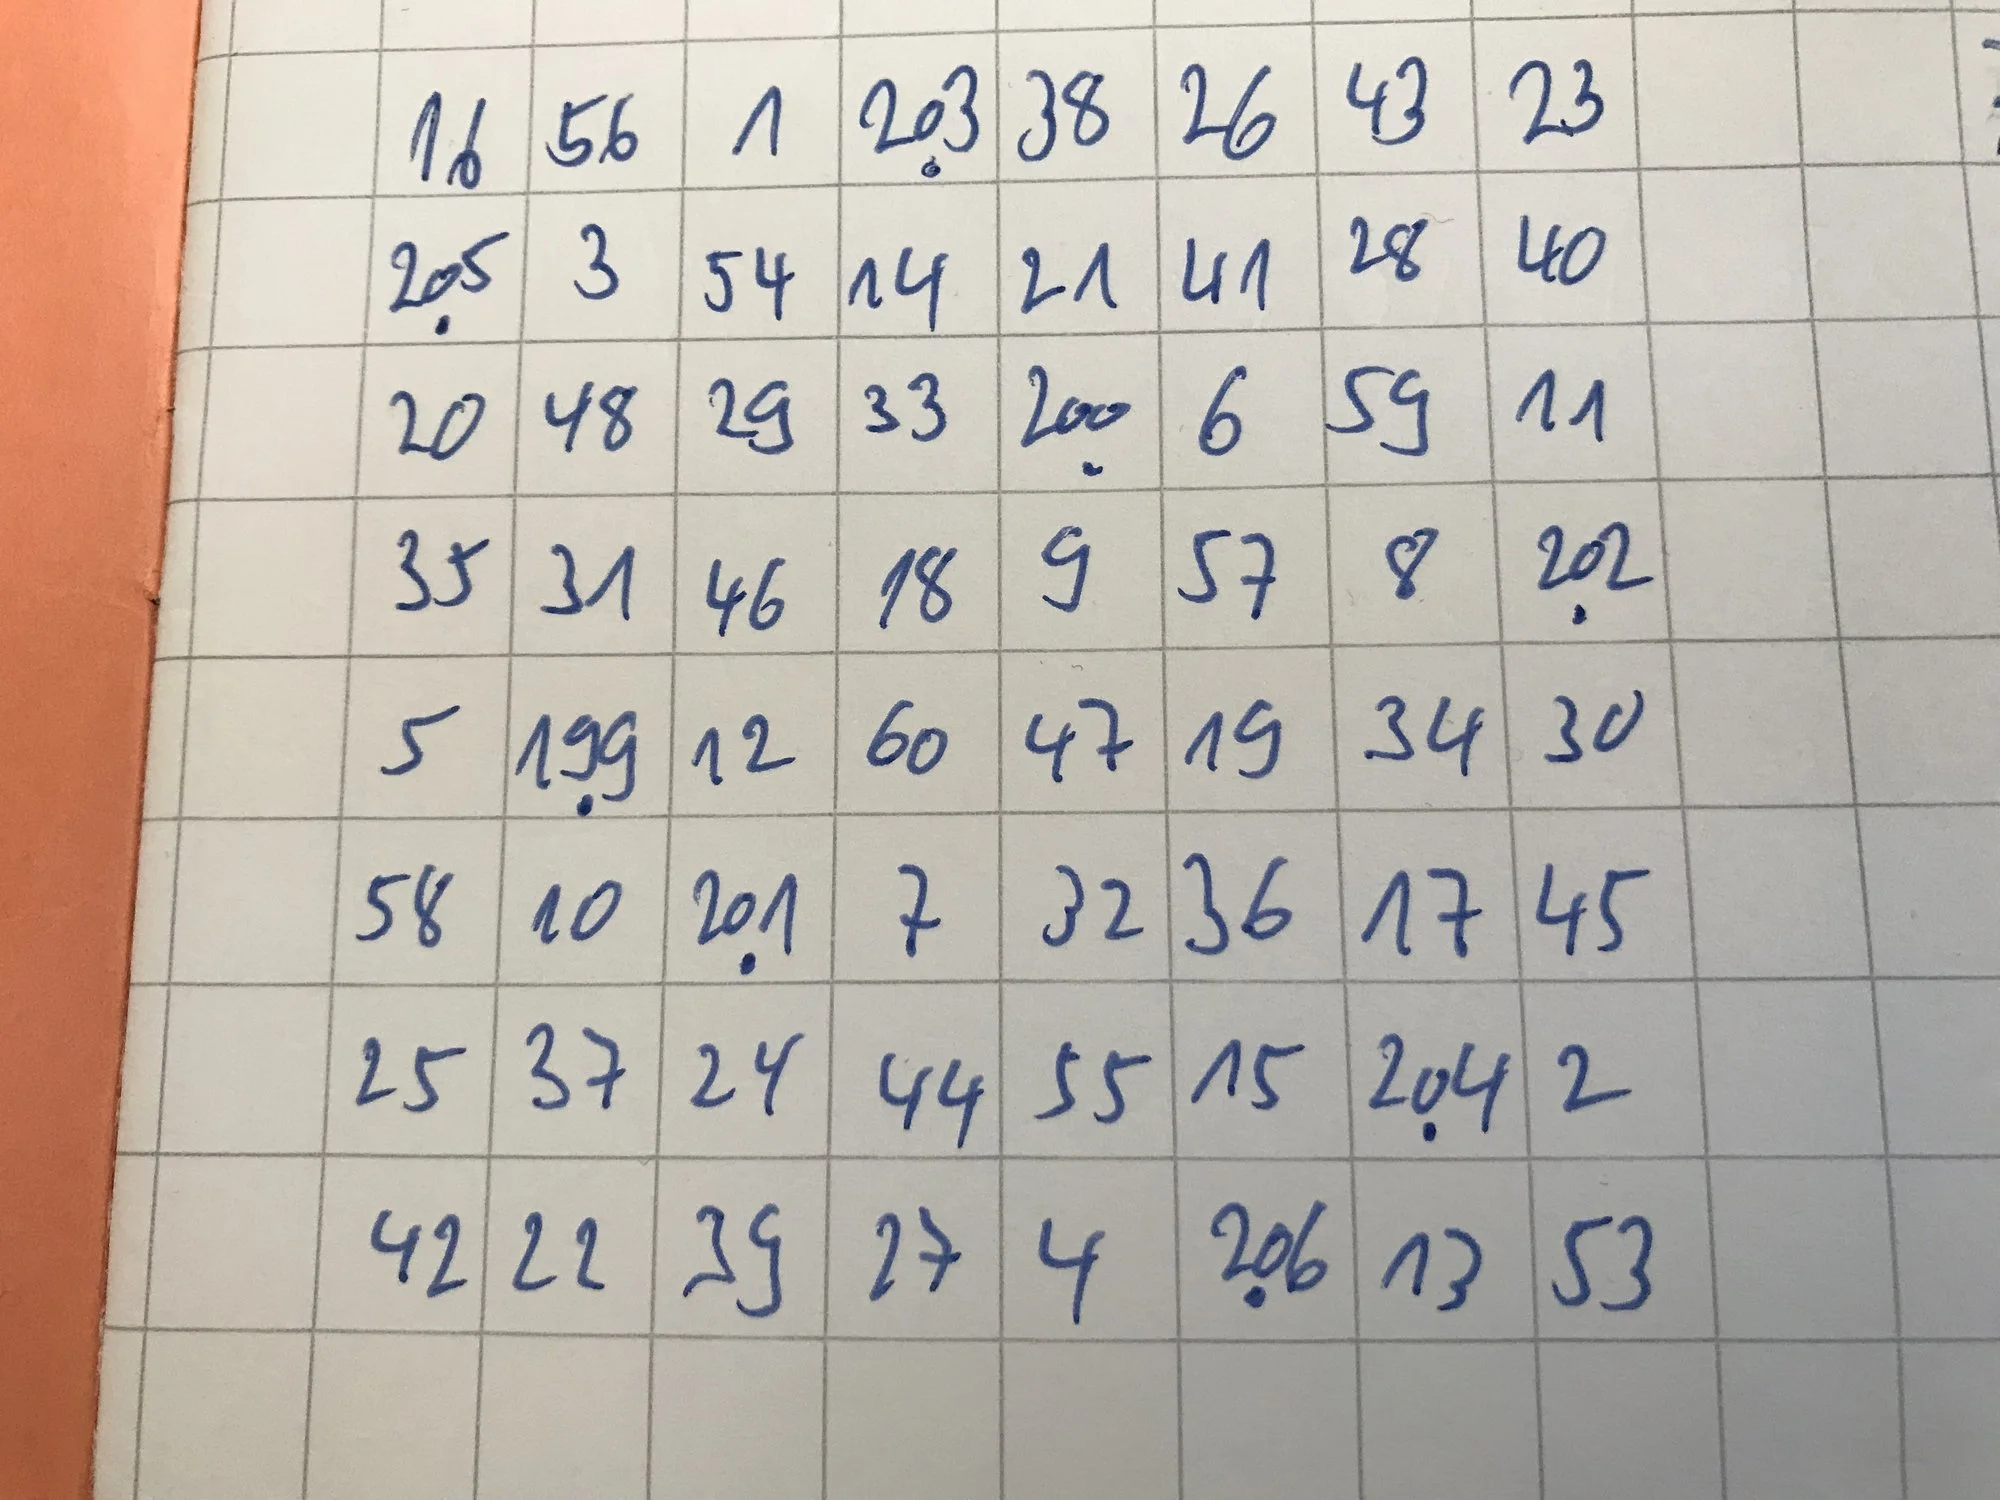 16 56 1 203 38 26 43 23
205 3 54 14 21 41 28 40
20 48 29 33 200 6 59 11
35 31 46 18 9 57 8 202
5 199 12 60 47 19 34 30
58 10 201 7 32 36 17 45
25 37 24 44 55 15 204 2
42 22 39 27 4 206 13 53